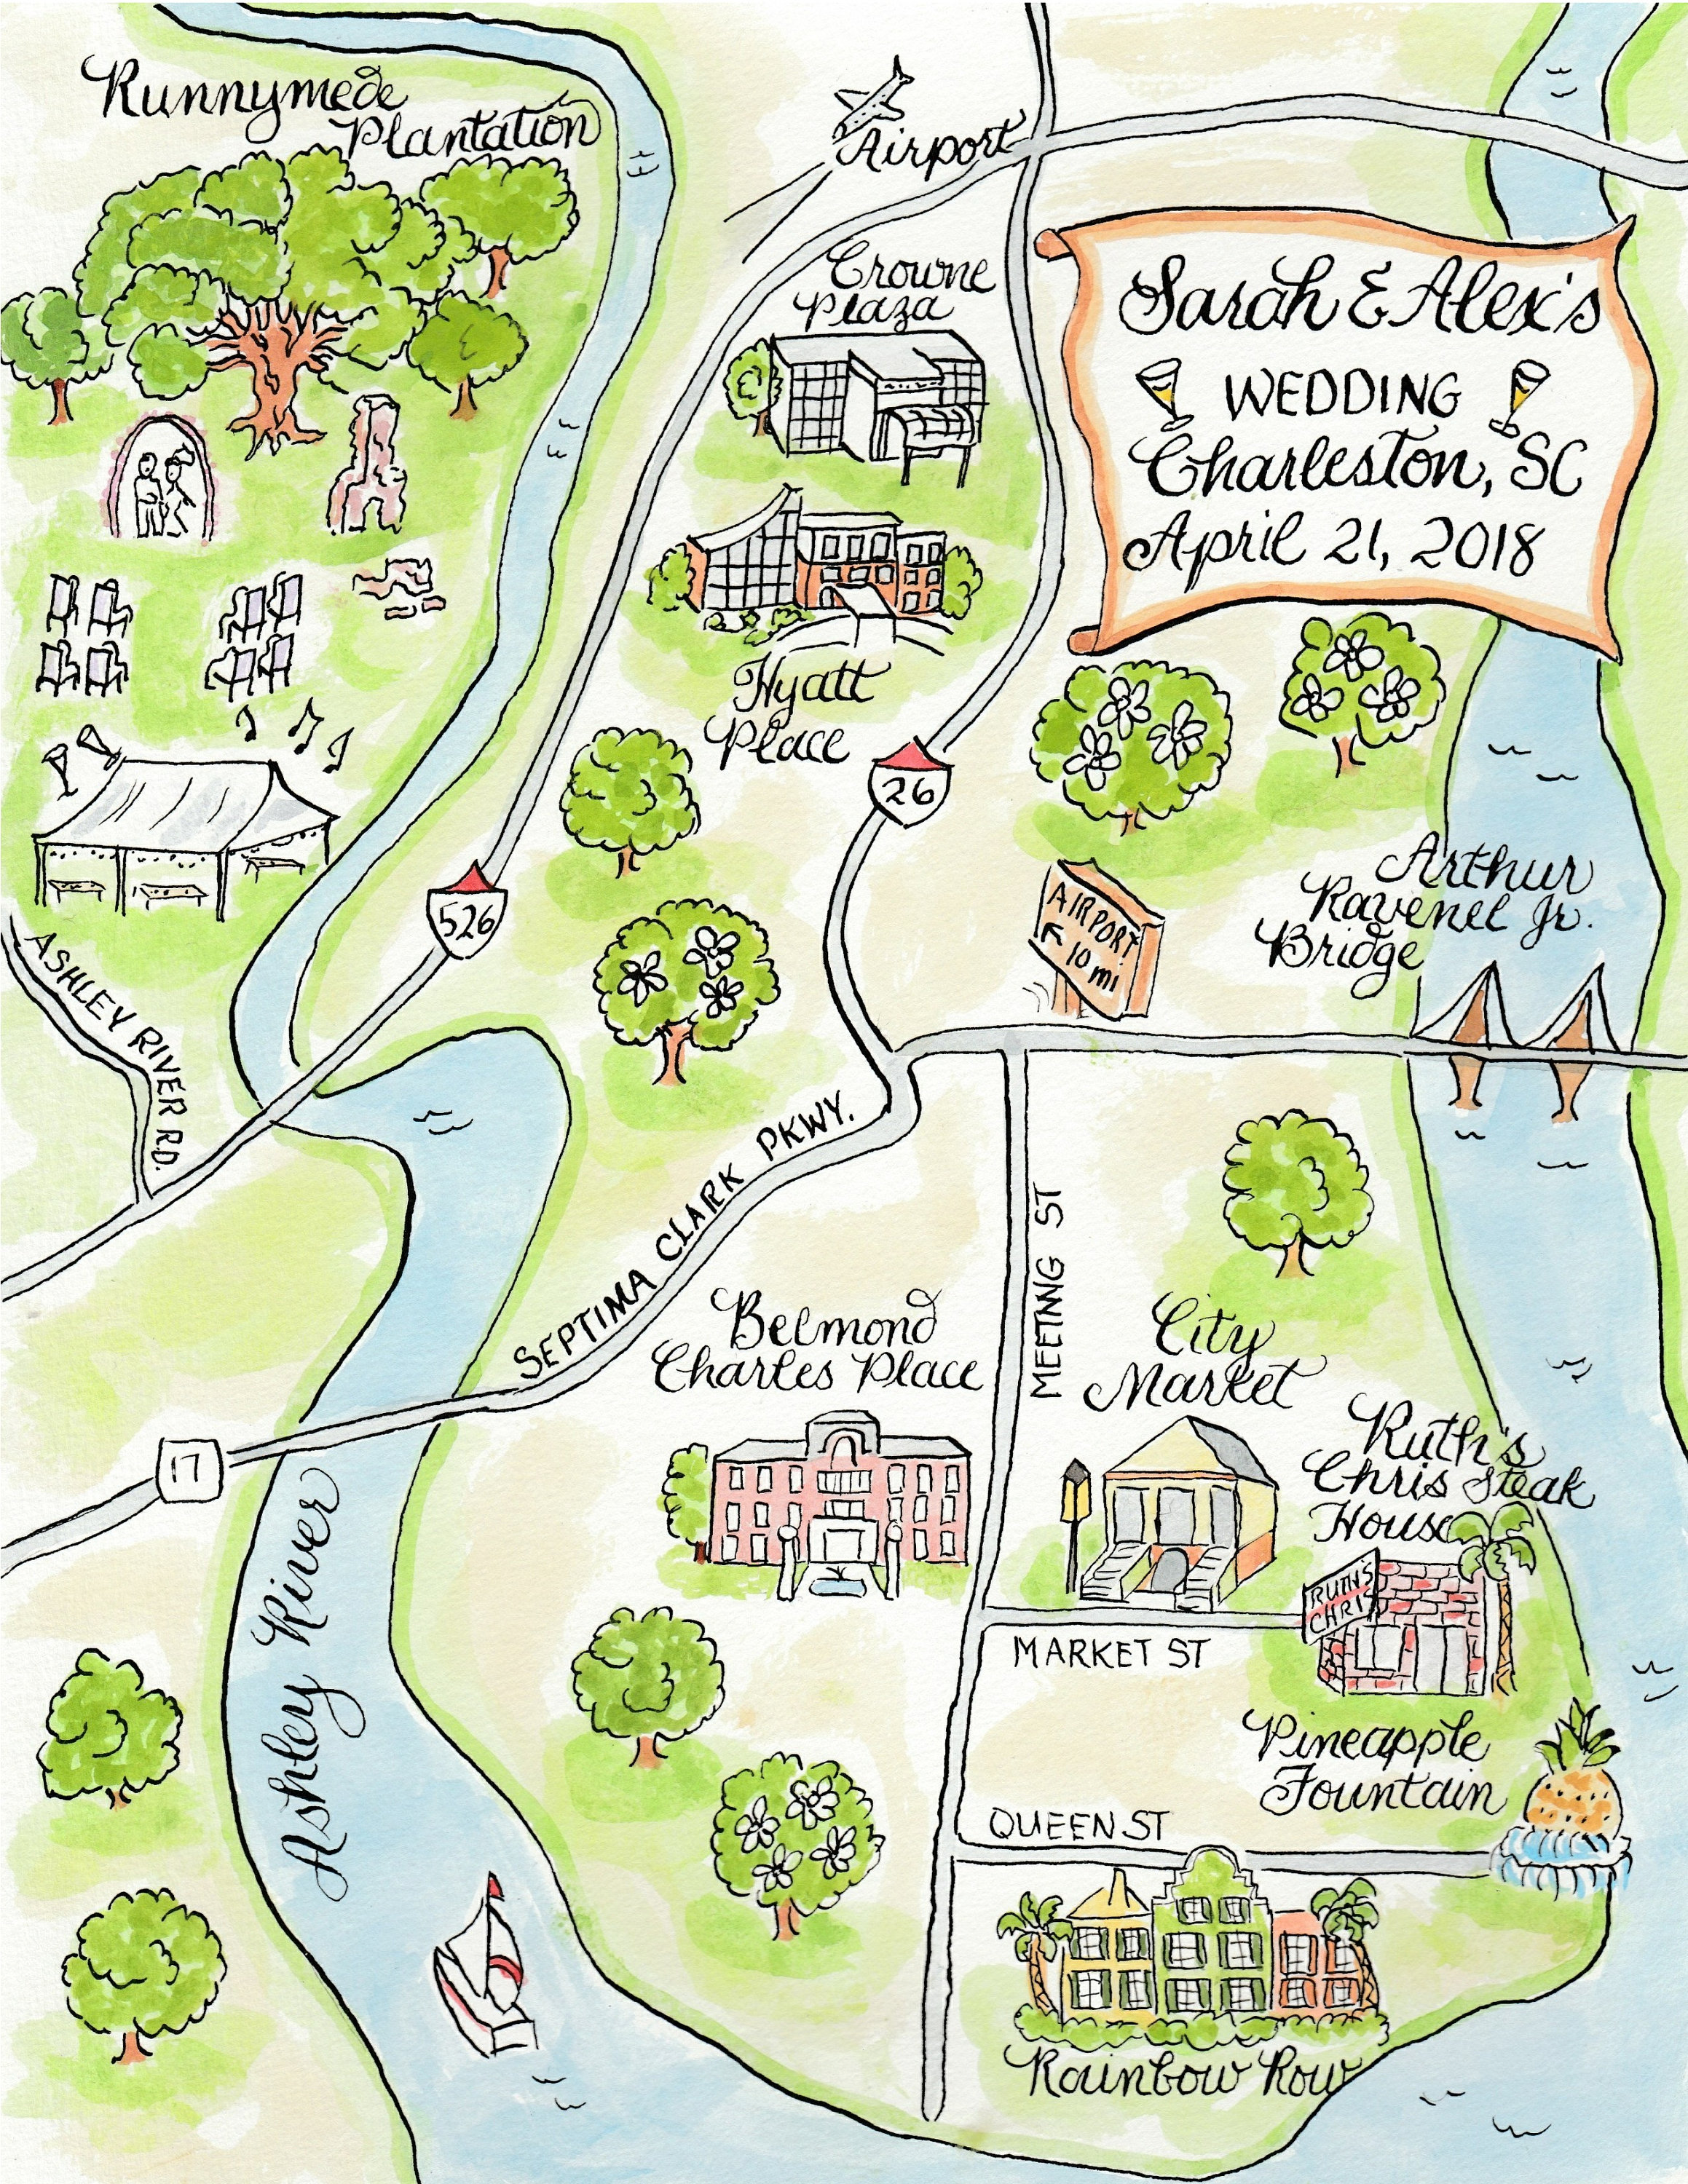 Runnymede
Plantation
Airport
Crowne
Plaza
Sarah & Alex's
WEDDING
Charleston, SC
April 21, 2018
Hyatt
Place
26
526
ASHLEY RIVER RD.
AIRPORT
10 mi
Arthur
Ravenel Jr.
Bridge
SEPTIMA CLARK PKWY.
MEETING ST
Belmond
Charles Place
City
Market
Ruth's
Chris Steak
House
RUTH'S
CHRIS
17
Ashley River
MARKET ST
Pineapple
Fountain
QUEEN ST
Rainbow Row